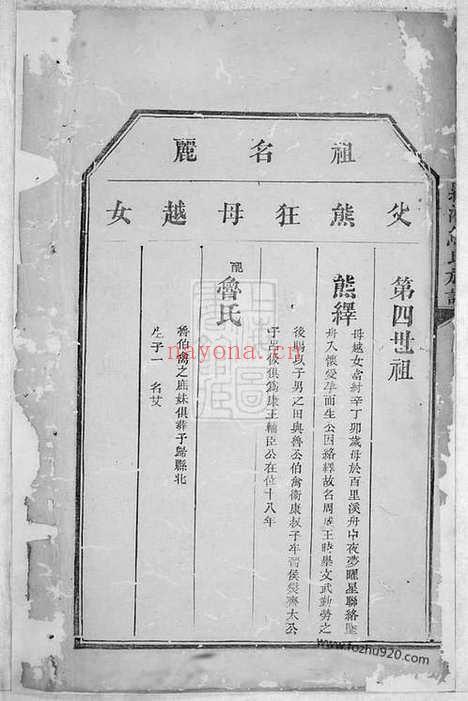 祖名麗
父熊狂母越女
第四世祖
熊繹
母越女當紂辛丁卯歲母於百里溪舟中夜夢曜星聯絡墜
舟入懷愛孕而生公因絡繹故名周成王時舉文武勤勞之
後賜以子男之田與魯公伯禽衛康叔子牟晉侯燮齊太公
子呂伋俱爲康王輔臣公在位十八年
配
魯氏
魯伯禽之庶妹俱葬子歸縣北
生子一 名艾
nayona.cn
www.fozhu920.com